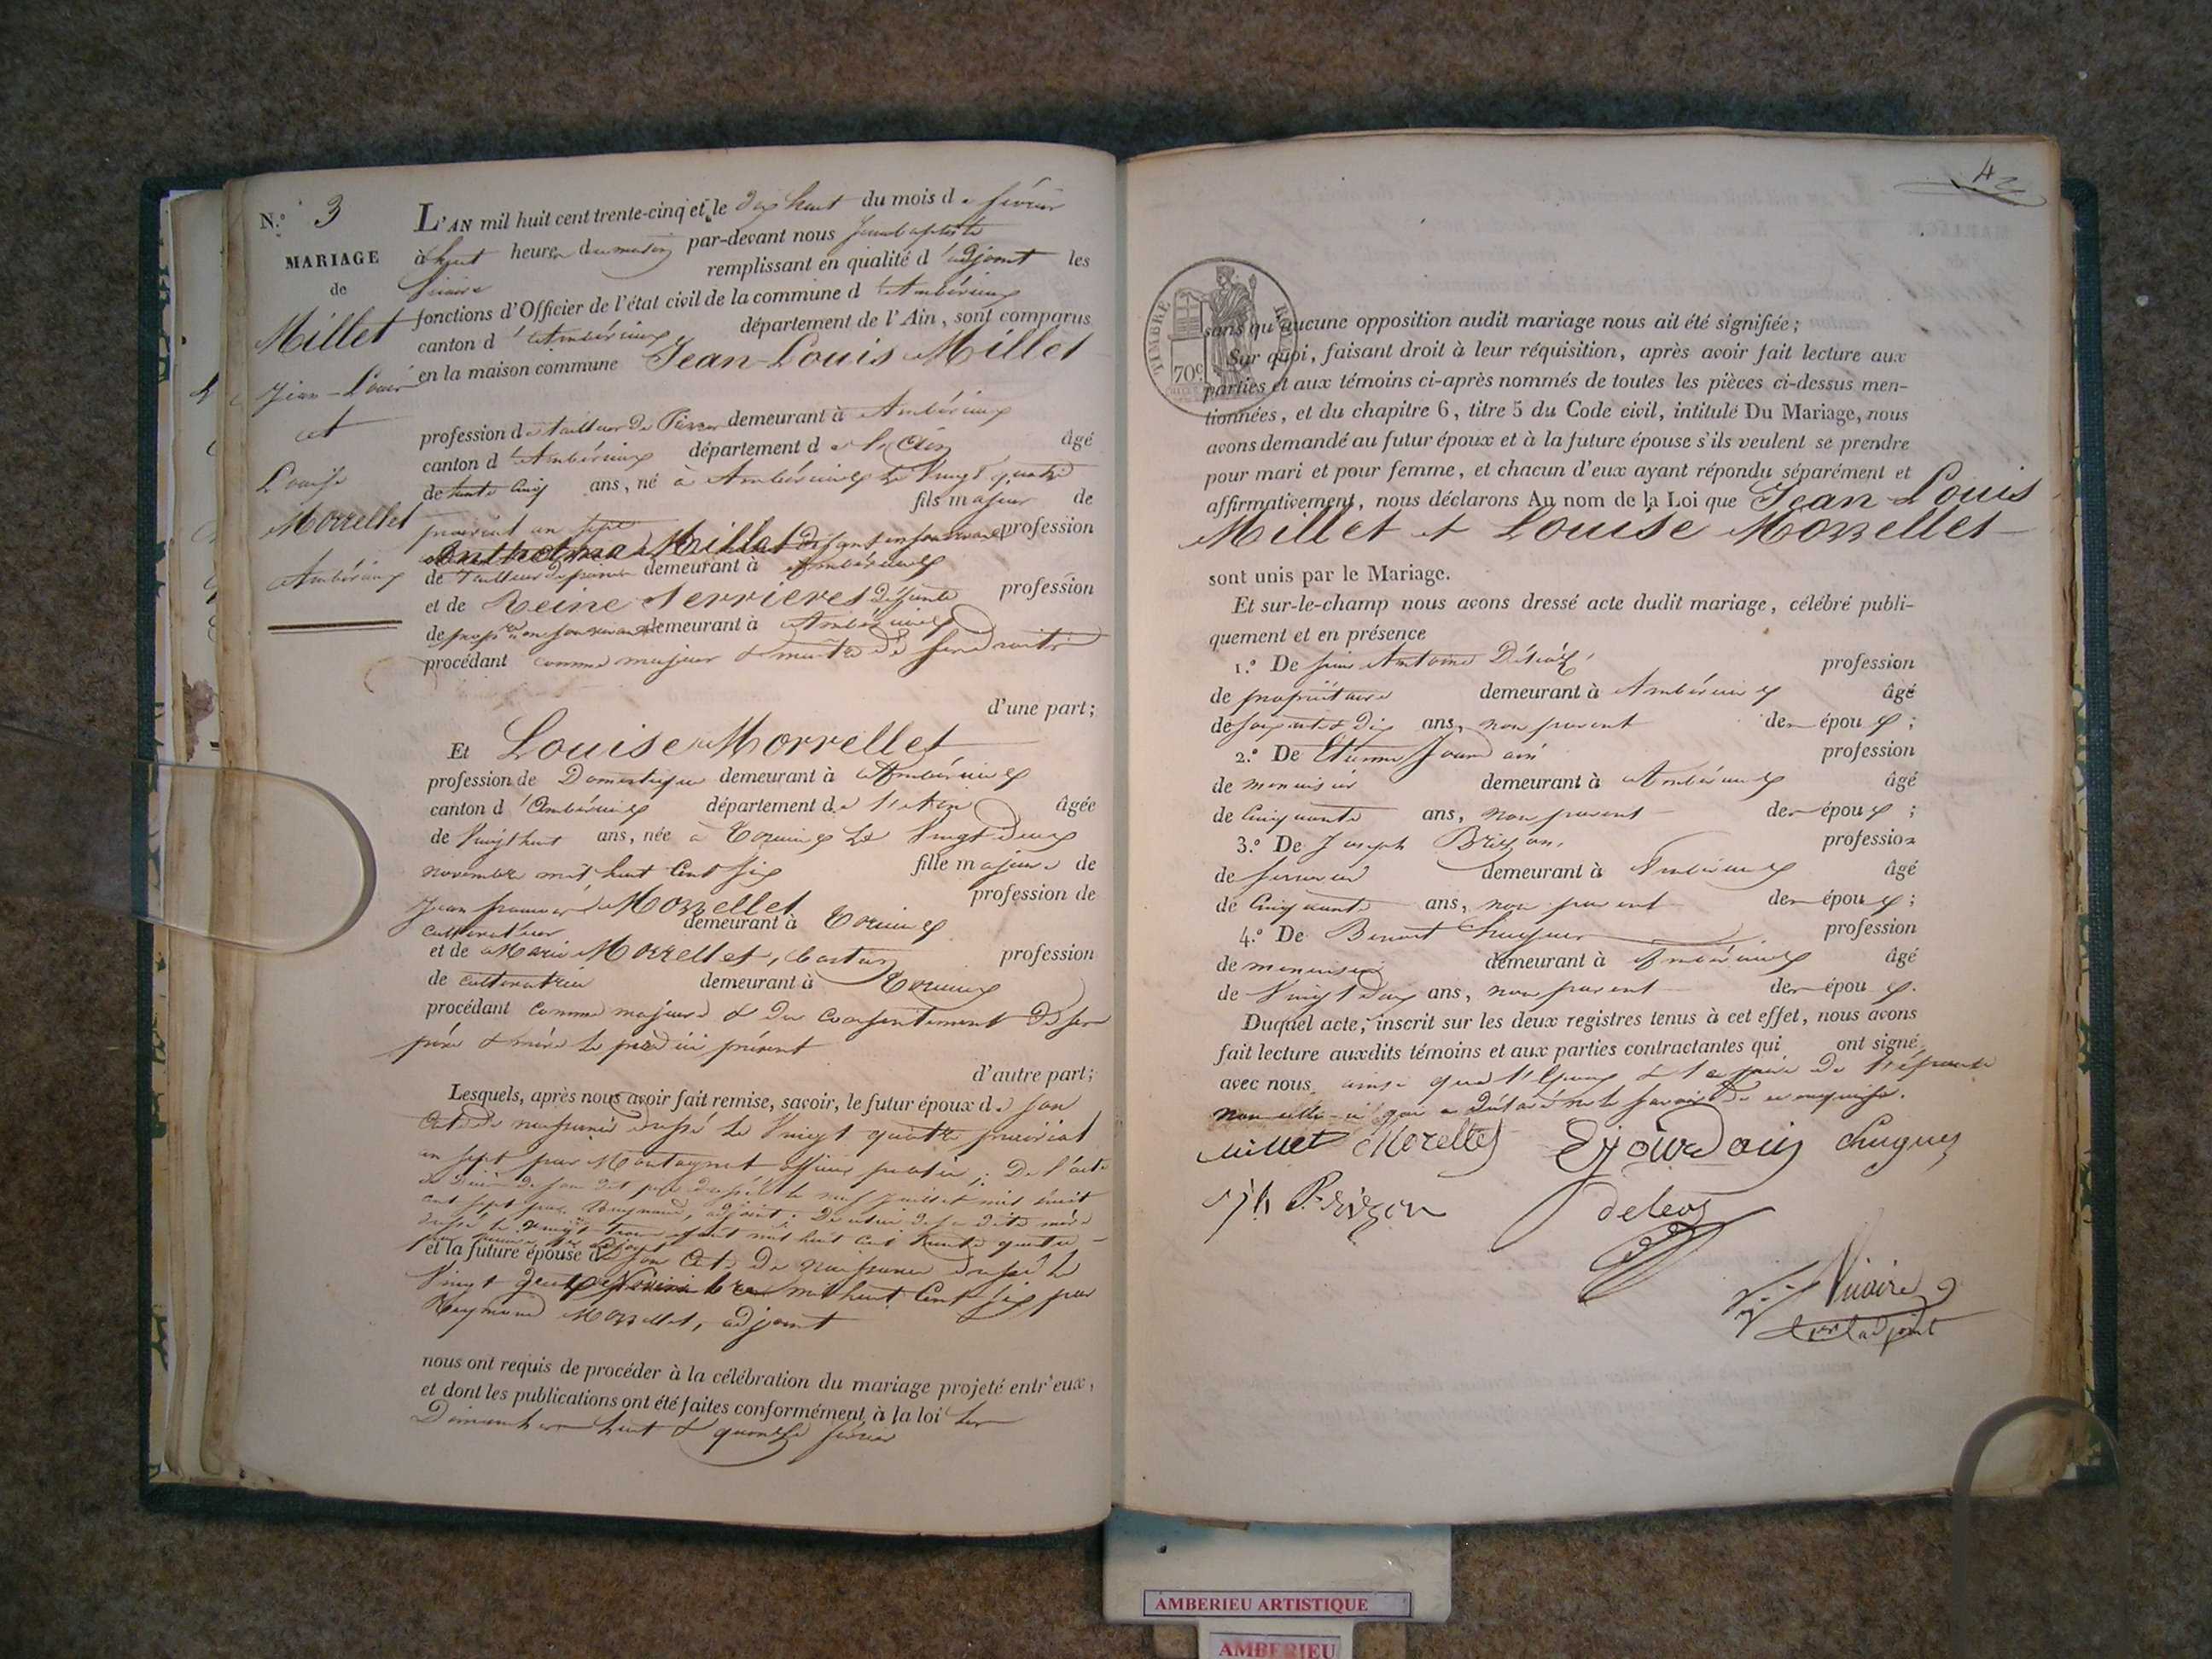 N.º 3
MARIAGE
de
Millet
Jean-Louis
et
Louise
Morrellet
Ambérieux
L'AN mil huit cent trente-cinq et le dix huit du mois de février
à huit heures du matin par-devant nous Jean baptiste
Vivaire remplissant en qualité d'adjoint les
fonctions d'Officier de l'état civil de la commune d'Ambérieux
canton d'Ambérieux département de l'Ain, sont comparus
en la maison commune Jean-Louis Millet
profession de tailleur de Pierres demeurant à Ambérieux
canton d'Ambérieux département de l'Ain âgé
de trente cinq ans, né à Ambérieux le Vingt quatre
prairial an sept fils majeur de
Anthelme Millet profession
de tailleur de pierres demeurant à Ambérieux
et de Reine Serrieres Défunte profession
de demeurant à Ambérieux
procédant comme majeur & maître de ses droits
d'une part;
Et Louise Morrellet
profession de Domestique demeurant à Ambérieux
canton d'Ambérieux département de l'Ain âgée
de Vingt huit ans, née à Torcieux le Vingt deux
novembre mil huit Cent six fille majeure de
Jean françois Morrellet profession de
cultivateur demeurant à Torcieux
et de Marie Morrellet, profession
de cultivatrice demeurant à Torcieux
procédant comme majeure & du Consentement de ses
père & mère le père ici présent
d'autre part;
Lesquels, après nous avoir fait remise, savoir, le futur époux de son
acte de naissance dressé le Vingt quatre prairial
an sept par Montagnat officier public; De l'acte
de décès de son dit père dressé le neuf Juillet mil huit
cent sept par adjoint; De celui de sa dite mère
dressé le vingt mil huit cent trente quatre
et la future épouse de son acte de naissance dressé le
Vingt deux Novembre mil huit Cent six par
Raymond Morrellet, adjoint
nous ont requis de procéder à la célébration du mariage projeté entr'eux,
et dont les publications ont été faites conformément à la loi les
Dimanches huit & quinze février
42
TIMBRE ROYAL
70c
sans qu'aucune opposition audit mariage nous ait été signifiée;
Sur quoi, faisant droit à leur réquisition, après avoir fait lecture aux
parties et aux témoins ci-après nommés de toutes les pièces ci-dessus men-
tionnées, et du chapitre 6, titre 5 du Code civil, intitulé Du Mariage, nous
avons demandé au futur époux et à la future épouse s'ils veulent se prendre
pour mari et pour femme, et chacun d'eux ayant répondu séparément et
affirmativement, nous déclarons Au nom de la Loi que Jean Louis
Millet & Louise Morrellet
sont unis par le Mariage.
Et sur-le-champ nous avons dressé acte dudit mariage, célébré publi-
quement et en présence
1.º De Antoine profession
de propriétaire demeurant à Ambérieux âgé
de soixante dix ans, non parent des époux;
2.º De Etienne Jourdain profession
de menuisier demeurant à Ambérieux âgé
de Cinquante ans, non parent des époux;
3.º De Joseph Brizon, profession
de serrurier demeurant à Ambérieux âgé
de Cinquante ans, non parent des époux;
4.º De Benoit Chugues profession
de menuisier demeurant à Ambérieux âgé
de Vingt ans, non parent des époux.
Duquel acte, inscrit sur les deux registres tenus à cet effet, nous avons
fait lecture auxdits témoins et aux parties contractantes qui ont signé
avec nous, ainsi que l'époux & le père de l'épouse
non celle-ci qui a déclaré ne le savoir de ce enquise.
Millet Morellet EJourdain Chugues
jh Brizon
Vivaire
adjoint
AMBERIEU ARTISTIQUE
AMBERIEU